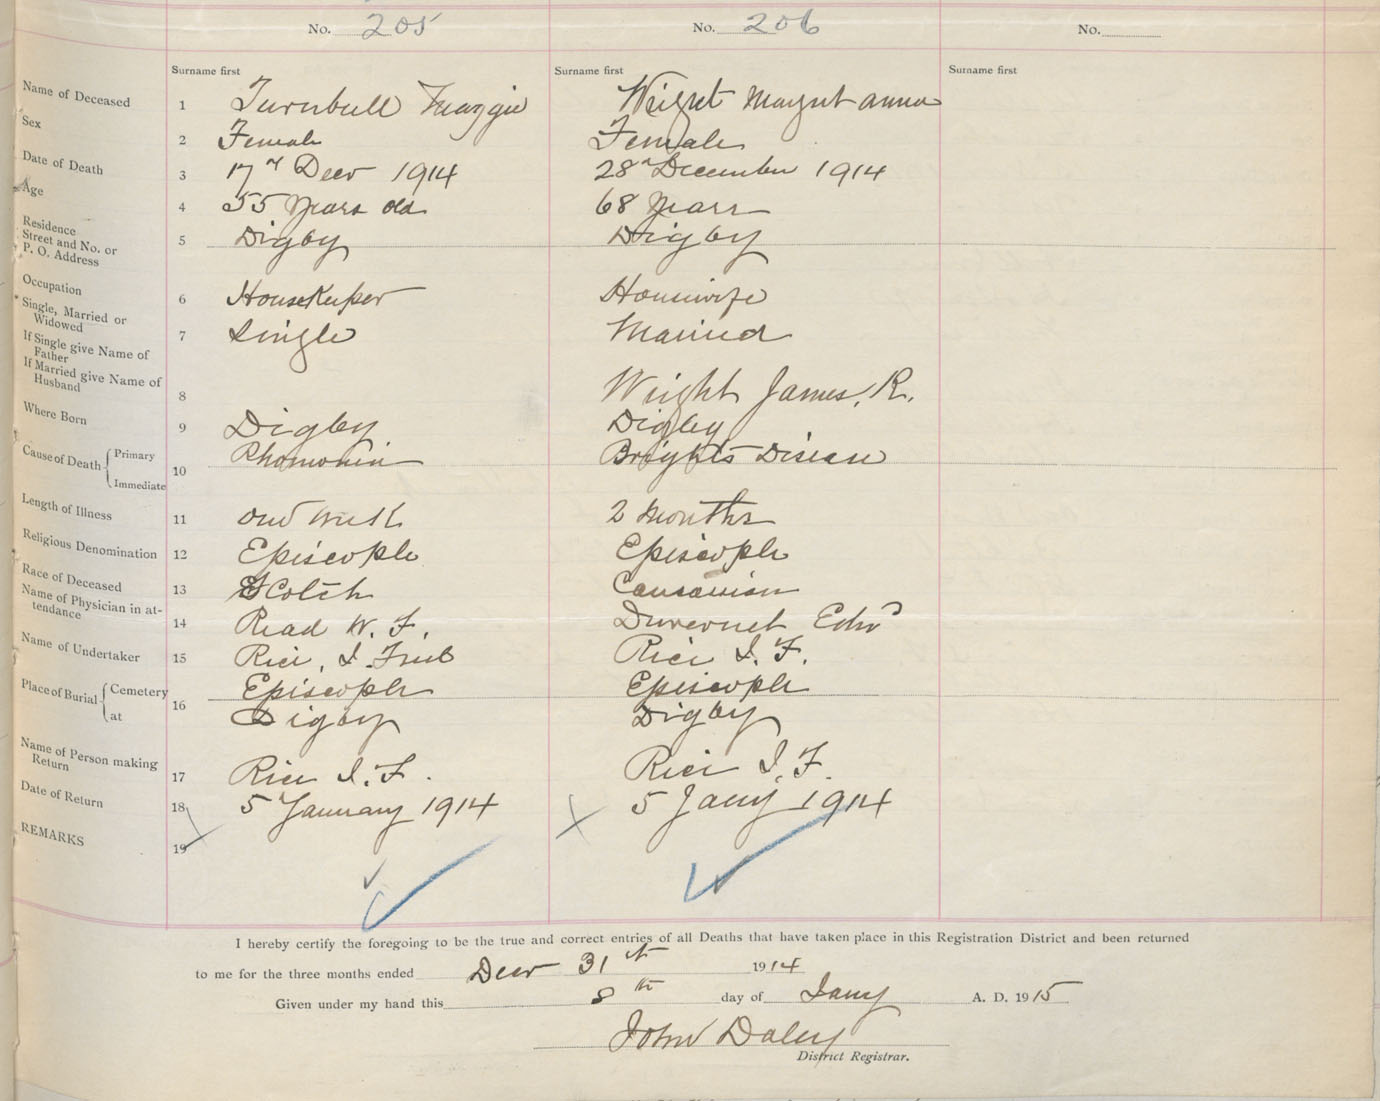 No. 205 No. 206 No.
Surname first Surname first Surname first
Name of Deceased 1 Turnbull Maggie Wright Margret anna
Sex 2 Female Female
Date of Death 3 17th Decr 1914 28th December 1914
Age 4 55 Years old 68 Years
Residence
Street and No. or
P. O. Address 5 Digby Digby
Occupation 6 HouseKeeper Housewife
Single, Married or
Widowed 7 Single Married
If Single give Name of
Father
If Married give Name of
Husband 8 Wright James, R.
Where Born 9 Digby Digby
Cause of Death { Primary
Immediate 10 Phomonia Brights Disease
Length of Illness 11 one week 2 months
Religious Denomination 12 Episcople Episcople
Race of Deceased 13 Scotch
Name of Physician in at-
tendance 14 Read W. F. Edwd
Name of Undertaker 15 Rice, I. Fred Rice I. F.
Place of Burial { Cemetery 16 Episcople Episcople
at Digby Digby
Name of Person making
Return 17 Rice I. F. Rice I. F.
Date of Return 18 5th January 1914 5 Jany 1914
REMARKS 19
I hereby certify the foregoing to be the true and correct entries of all Deaths that have taken place in this Registration District and been returned
to me for the three months ended Decr 31st 1914
Given under my hand this 8th day of Jany A. D. 1915
John Daley
District Registrar.